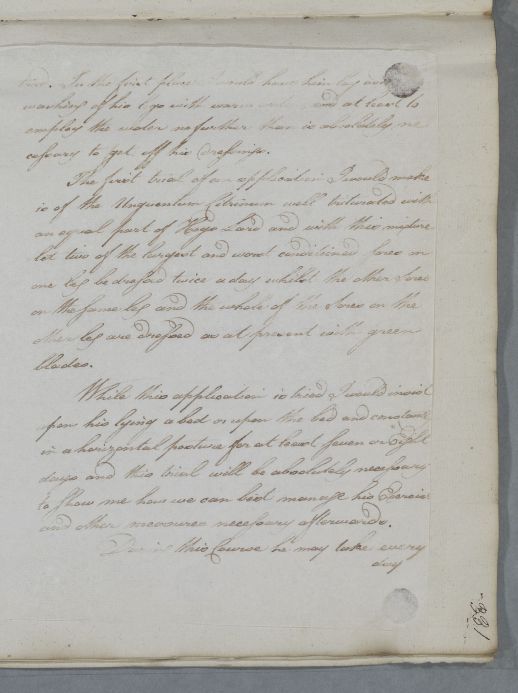 tive. In the first place I would have him lay aside
washing of his legs with warm water and at least to
employ the water no further than is absolutely ne
cessary to get off his dressings.
The first trial of an application I would make
is of the Unguentum Citrinum well triturated with
an equal part of Hogs Lard and with this mixture
let two of the largest and worst conditioned sores in
one leg be dressed twice a day whilst the other Sores
on the same leg and the whole of the Sores on the
other leg are dressed as at present with green
blades.
While this application is tried I would insist
upon his lying a bed or upon the bed and constantly
in a horizontal posture for at least seven or Eight
days and this trial will be absolutely necessary
to show me how we can best manage his Exercise
and other measures necessary afterwards.
During this Course he may take every
day